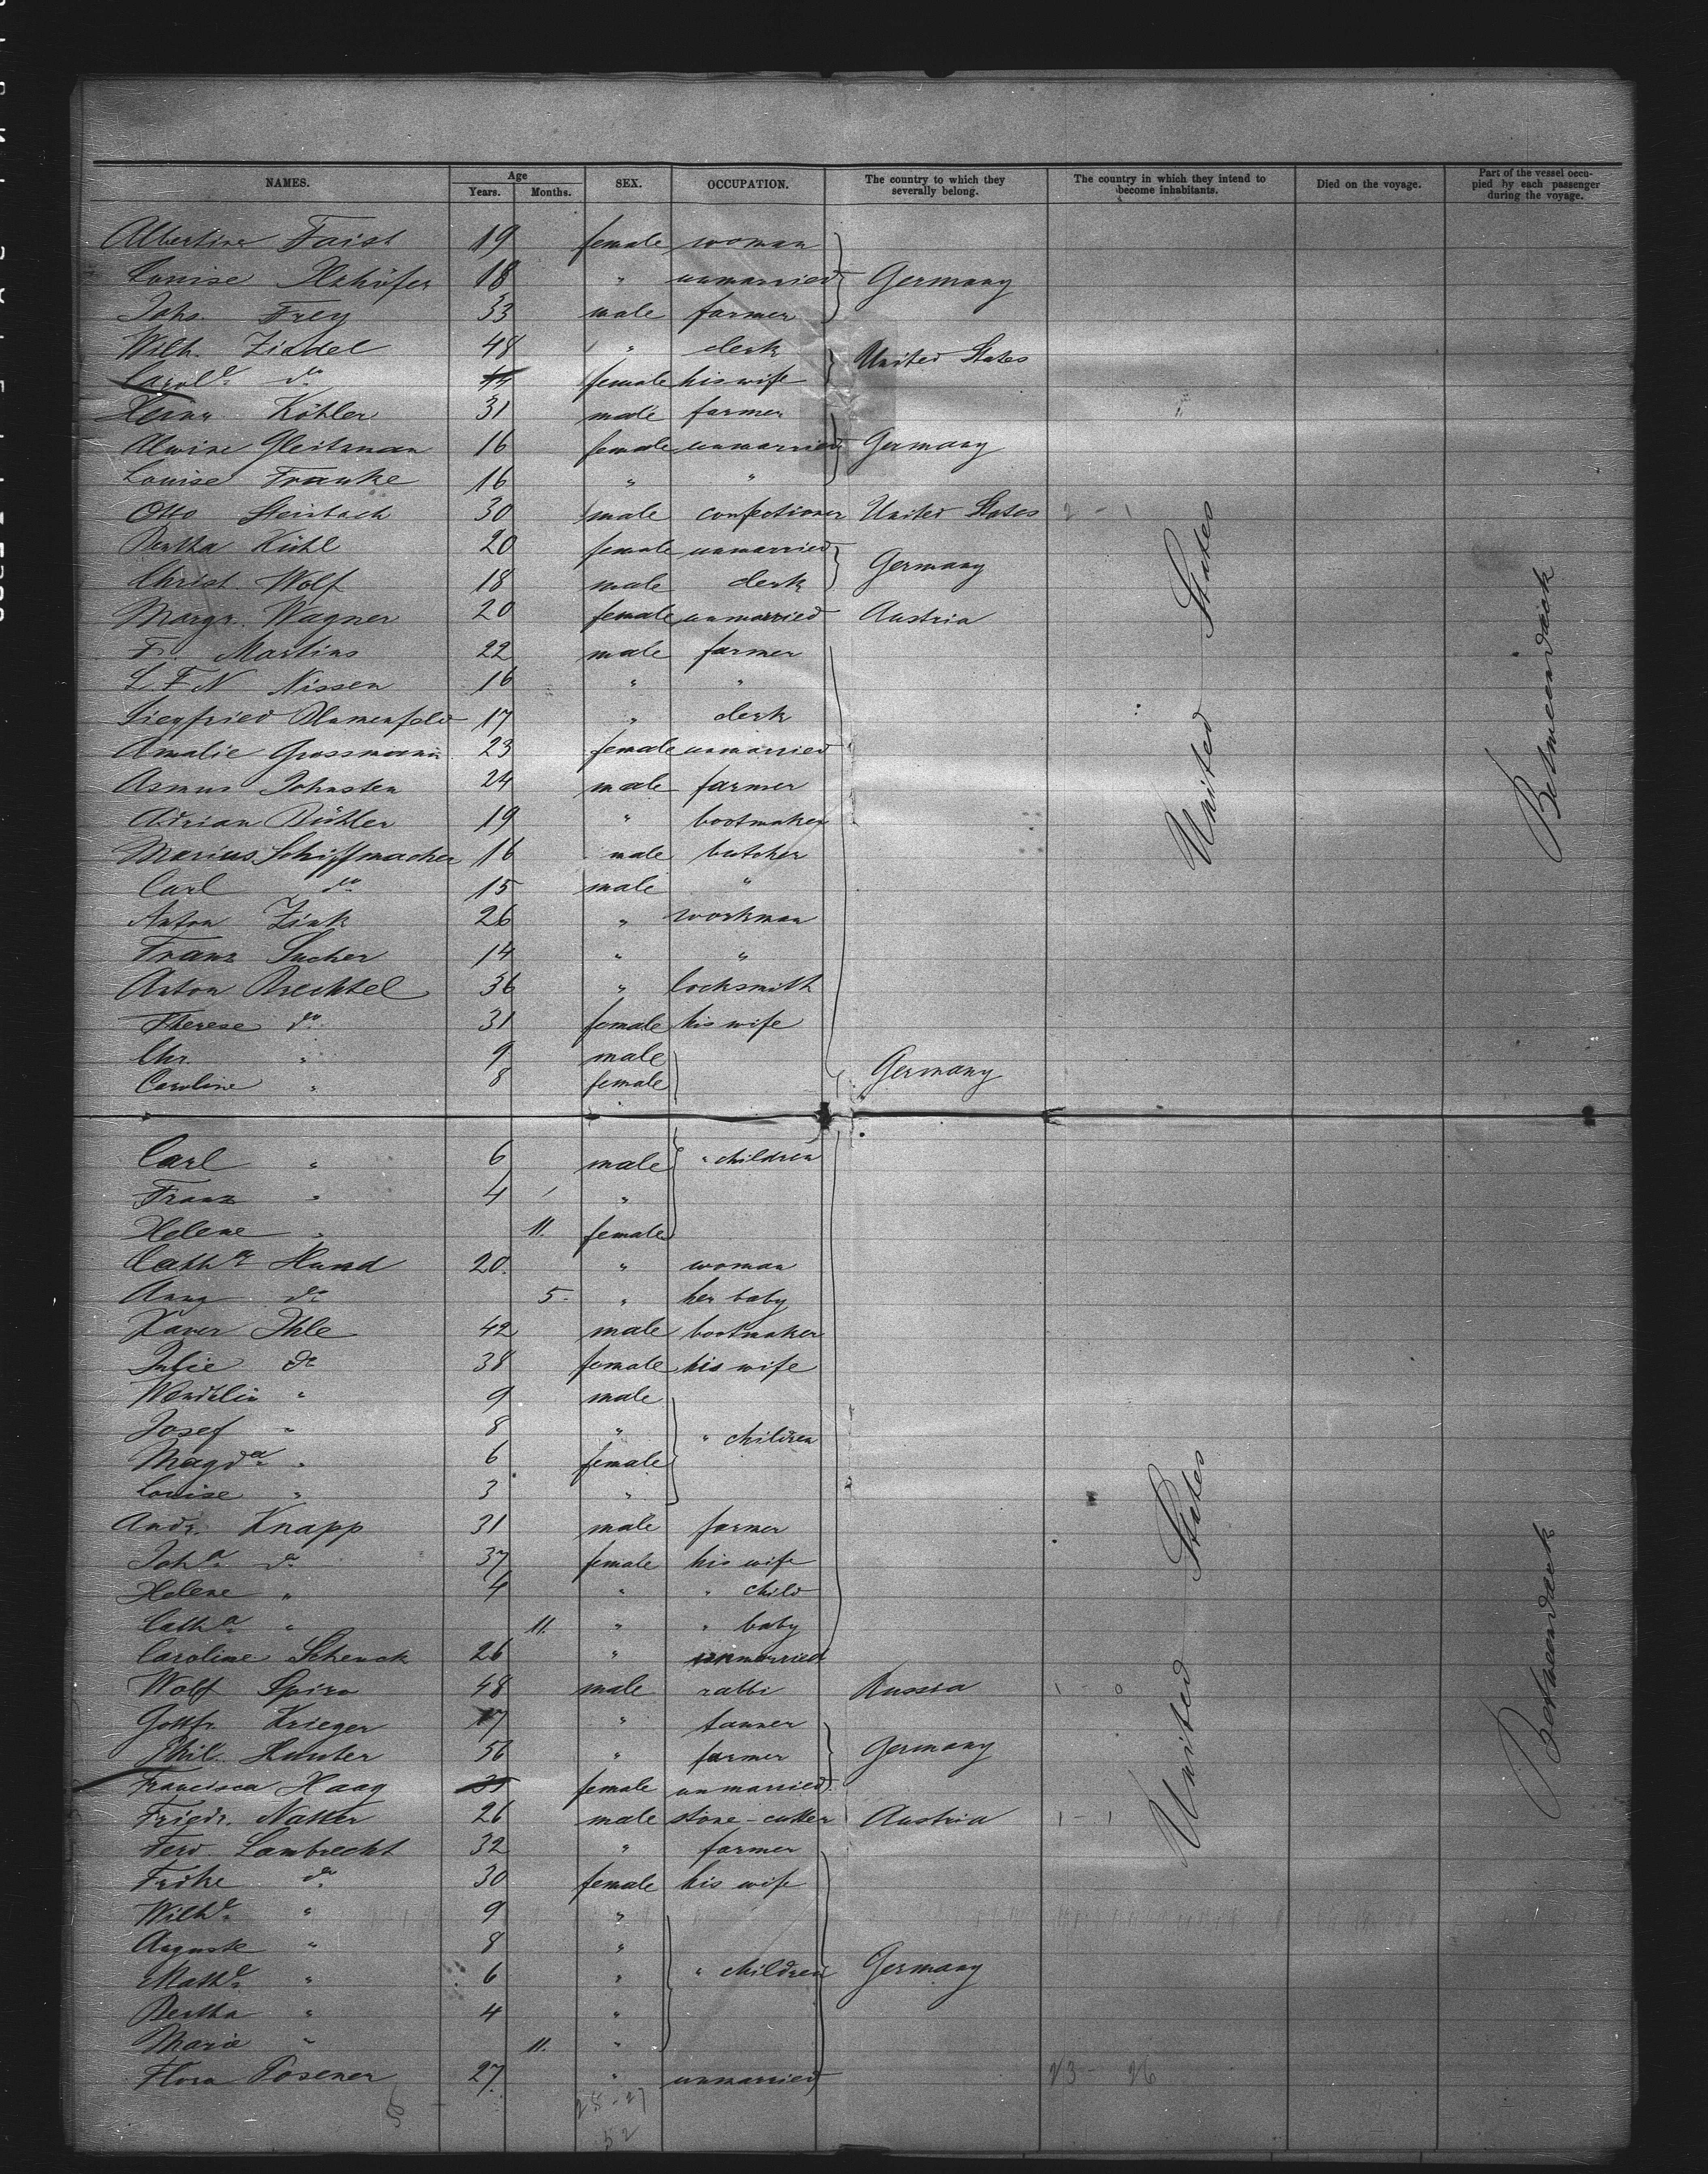 NAMES. Age SEX. OCCUPATION. The country to which they severally belong. The country in which they intend to become inhabitants. Died on the voyage. Part of the vessel occupied by each passenger during the voyage.
Years. Months.
Albertine Faist 19 female woman
Louise Ilzhöfer 18 " unmarried Germany
Johs. Frey 33 male farmer
Wilh. Ziedel 48 " clerk United States
Carole. do 44 female his wife
Herm. Köhler 31 male farmer
Alwine Gleitsman 16 female unmarried Germany
Louise Franke 16 " "
Otto Steinbach 30 male confectioner United States 2 - 1
Bertha Kühl 20 female unmarried
Christ. Wolf 18 male clerk Germany
Margr. Wagner 20 female unmarried Austria
Fr. Martins 22 male farmer
L. F. N Nissen 16 " "
Siegfried Blumenfeld 17 " clerk
Amalie Grossmann 23 female unmarried
Asmus Johnsten 24 male farmer
Adrian Bühler 19 " bootmaker
Marius Schiffmacher 16 male butcher
Carl do 15 male "
Anton Zink 26 " workman
Franz Sucher 14 " "
Anton Brechtel 36 " locksmith
Therese do 31 female his wife
Chr. " 9 male
Caroline " 8 female Germany
Carl " 6 male " children
Franz " 4 "
Helene " 11. female
Catha. Hund 20. " woman
Anna do 5. " her baby
Xaver Ihle 42 male bootmaker
Julie do 38 female his wife
Wendelin " 9 male
Josef " 8 " " children
Magda. " 6 female
Louise " 3 "
Andr. Knapp 31 male farmer
Joha. do 37 female his wife
Helene " 4 " " child
Catha. " 11. " " baby
Caroline Schenck 26 " unmarried
Wolf Spiro 48 male rabbi Russia 1 - 0
Gottfr. Krieger 17 " tanner
Phil. Hunter 56 " farmer Germany
Francisca Haag female unmarried
Friedr. Natter 26 male stone-cutter Austria 1 - 1
Ferd. Lambrecht 32 " farmer
Frike do 30 female his wife
Wilhe. " 9 "
Auguste " 8 "
Mathe. " 6 " " children Germany
Bertha " 4 "
Marie " 11. "
Flora Posener 27 " unmarried 23 - 26
25 - 27
52
United States
United States
Betweendeck
Betweendeck